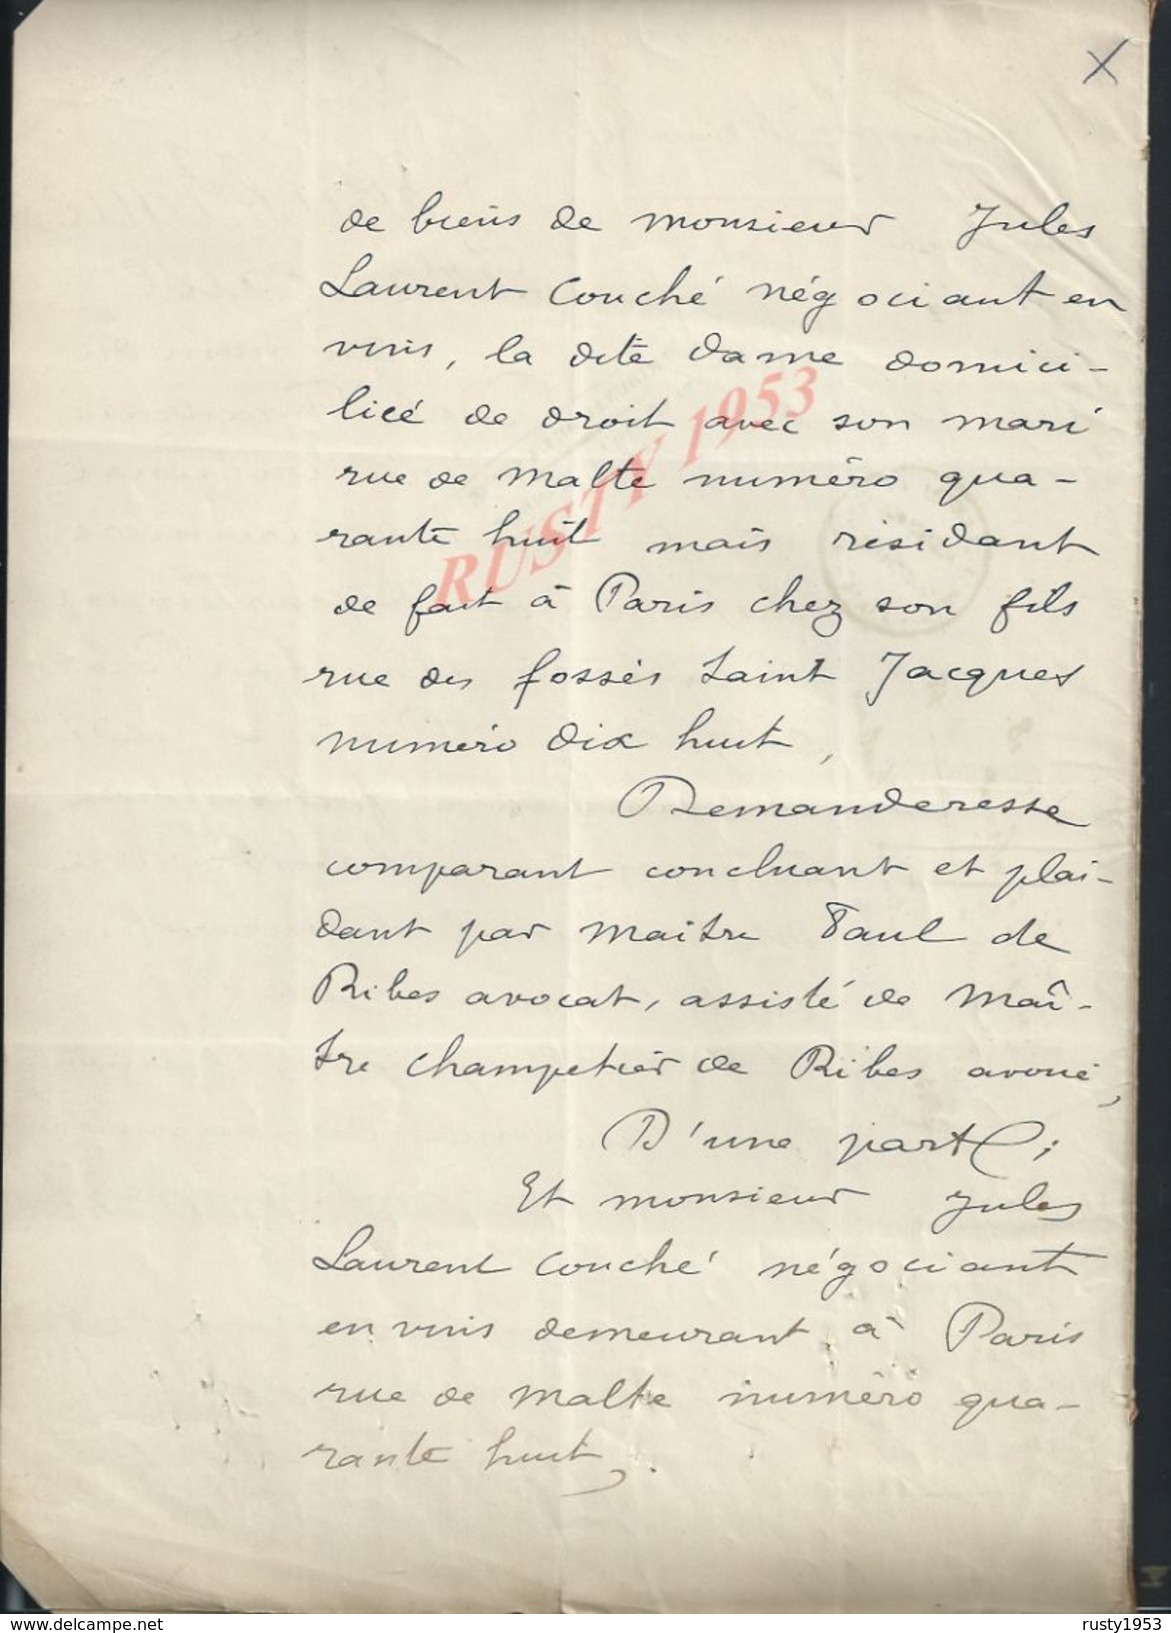 de biens de monsieur Jules
Laurent Couché négociant en
vins, la dite dame domici-
liée de droit avec son mari
rue de Malte numéro qua-
rante huit mais résidant
de fait à Paris chez son fils
rue des fossés Saint Jacques
numéro dix huit,
Demanderesse
comparant concluant et plai-
dant par Maitre Paul de
Ribes avocat, assisté de Maî-
tre Champetier de Ribes avoué,
D'une part;
Et monsieur Jules
Laurent Couché négociant
en vins demeurant à Paris
rue de Malte numéro qua-
rante huit,
RUSTY 1953
www.delcampe.net
rusty1953